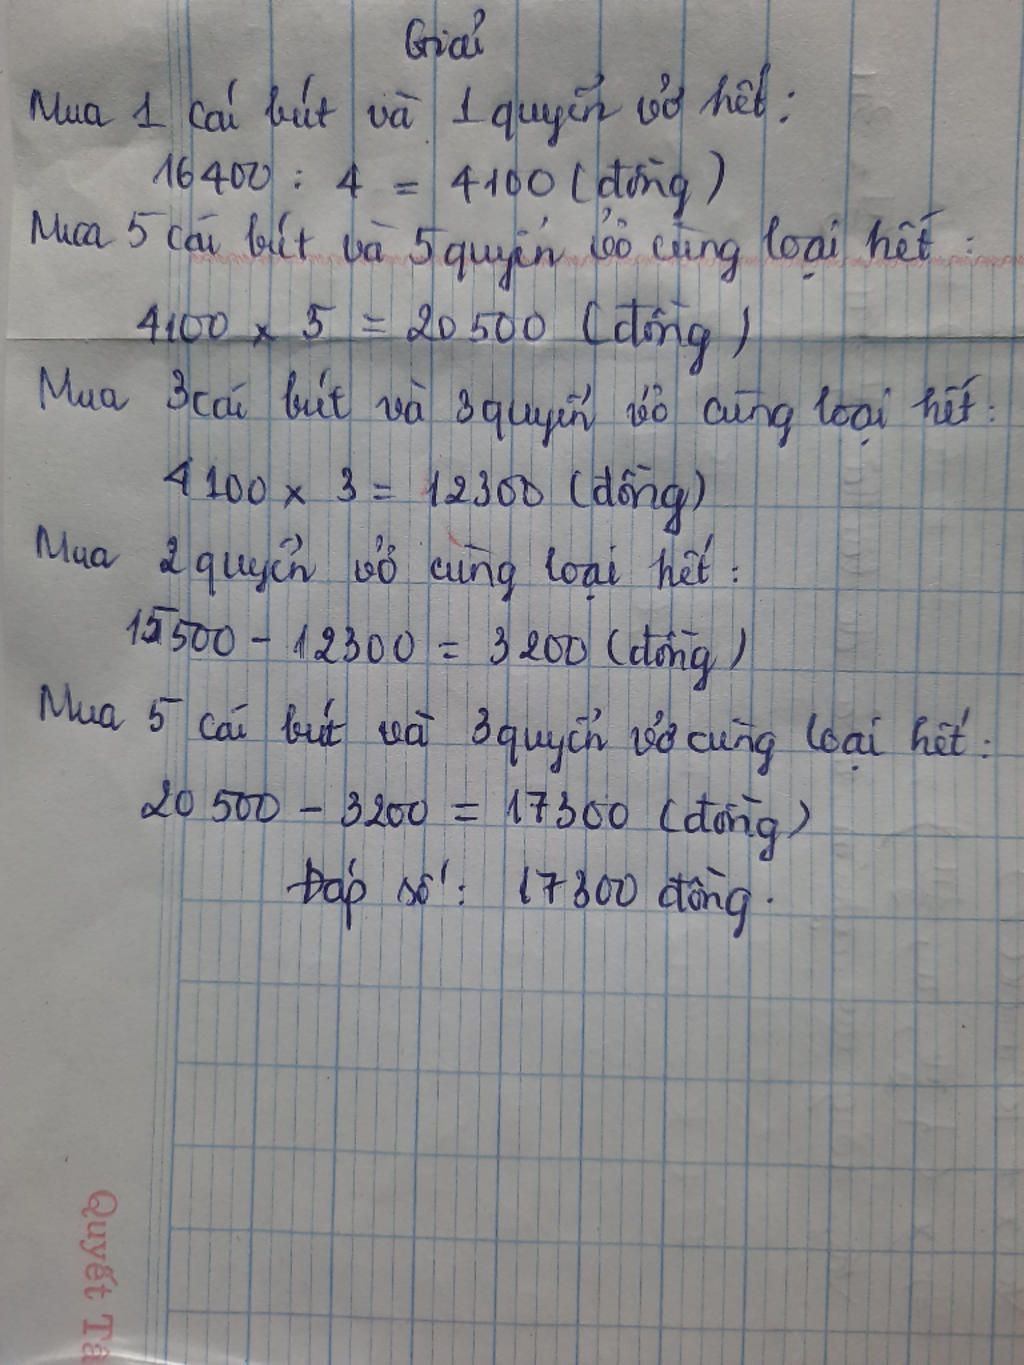 Giải
Mua 1 cái bút và 1 quyển vở hết:
16400 : 4 = 4100 (đồng)
Mua 5 cái bút và 5 quyển vở cùng loại hết:
4100 x 5 = 20500 (đồng)
Mua 3 cái bút và 3 quyển vở cùng loại hết:
4100 x 3 = 12300 (đồng)
Mua 2 quyển vở cùng loại hết:
15500 - 12300 = 3200 (đồng)
Mua 5 cái bút và 3 quyển vở cùng loại hết:
20500 - 3200 = 17300 (đồng)
Đáp số: 17300 đồng.
Quyết